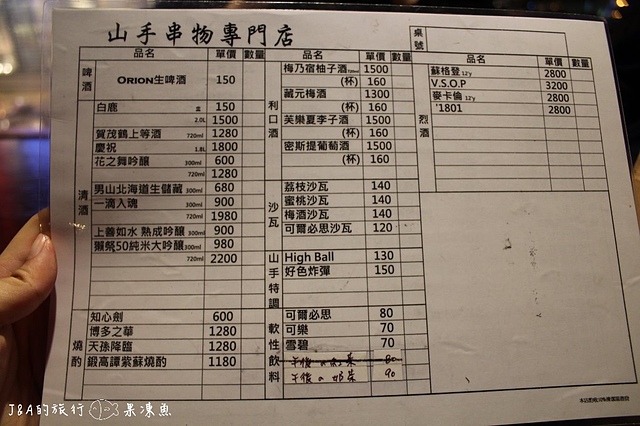 山手串物專門店
桌號
品名 單價 數量
啤酒
ORION生啤酒 150
清酒
白鹿 壺 150
2.0L 1500
賀茂鶴上等酒 720ml 1280
慶祝 1.8L 1800
花之舞吟釀 300ml 600
720ml 1280
男山北海道生儲藏 300ml 680
一滴入魂 300ml 900
720ml 1980
上善如水 熟成吟釀 300ml 900
獺祭50純米大吟釀 300ml 980
720ml 2200
燒酌
知心劍 600
博多之華 1280
天孫降臨 1280
鍛高譚紫蘇燒酌 1180
品名 單價 數量
利口酒
梅乃宿柚子酒 720ml 1500
(杯) 160
藏元梅酒 1300
(杯) 160
芙樂夏李子酒 1500
(杯) 160
密斯提葡萄酒 1500
(杯) 160
沙瓦
荔枝沙瓦 140
蜜桃沙瓦 140
梅酒沙瓦 140
可爾必思沙瓦 120
山手特調
High Ball 130
好色炸彈 150
軟性飲料
可爾必思 80
可樂 70
雪碧 70
午後の紅茶 80
午後の奶茶 90
品名 單價 數量
烈酒
蘇格登 12y 2800
V.S.O.P 3200
麥卡倫 12y 2800
'1801 2800
J&A的旅行 果凍魚